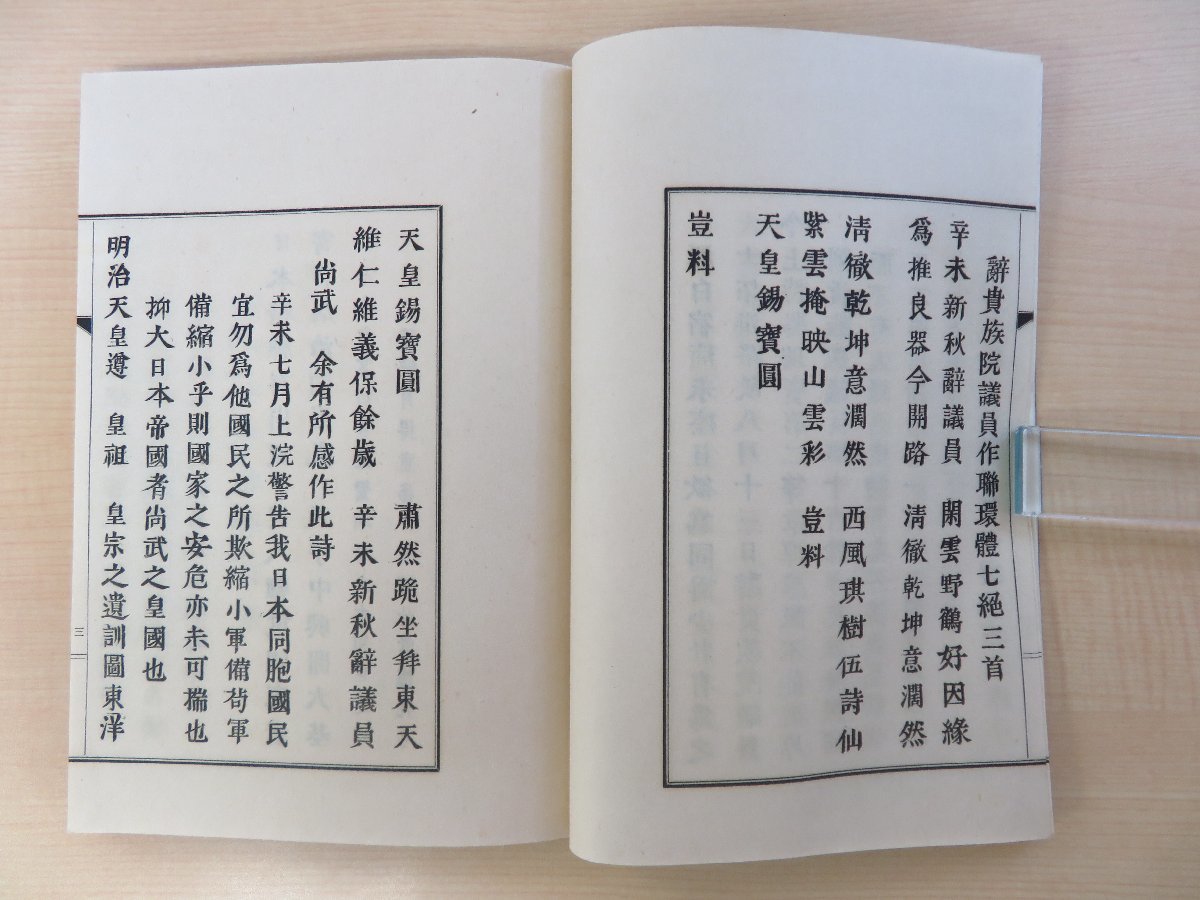 辭貴族院議員作聯環體七絕三首
辛未新秋辭議員　閑雲野鶴好因緣
爲推良器今開路　清徹乾坤意濶然
清徹乾坤意濶然　西風琪樹伍詩仙
紫雲掩映山雲彩　豈料
天皇錫寶圓
豈料
天皇錫寶圓　肅然跪坐拜東天
維仁維義保餘歲　辛未新秋辭議員
尚武　余有所感作此詩
辛未七月上浣警告我日本同胞國民
宜勿爲他國民之所欺縮小軍備茍軍
備縮小乎則國家之安危亦未可揣也
抑大日本帝國者尚武之皇國也
明治天皇遵　皇祖　皇宗之遺訓圖東洋
三